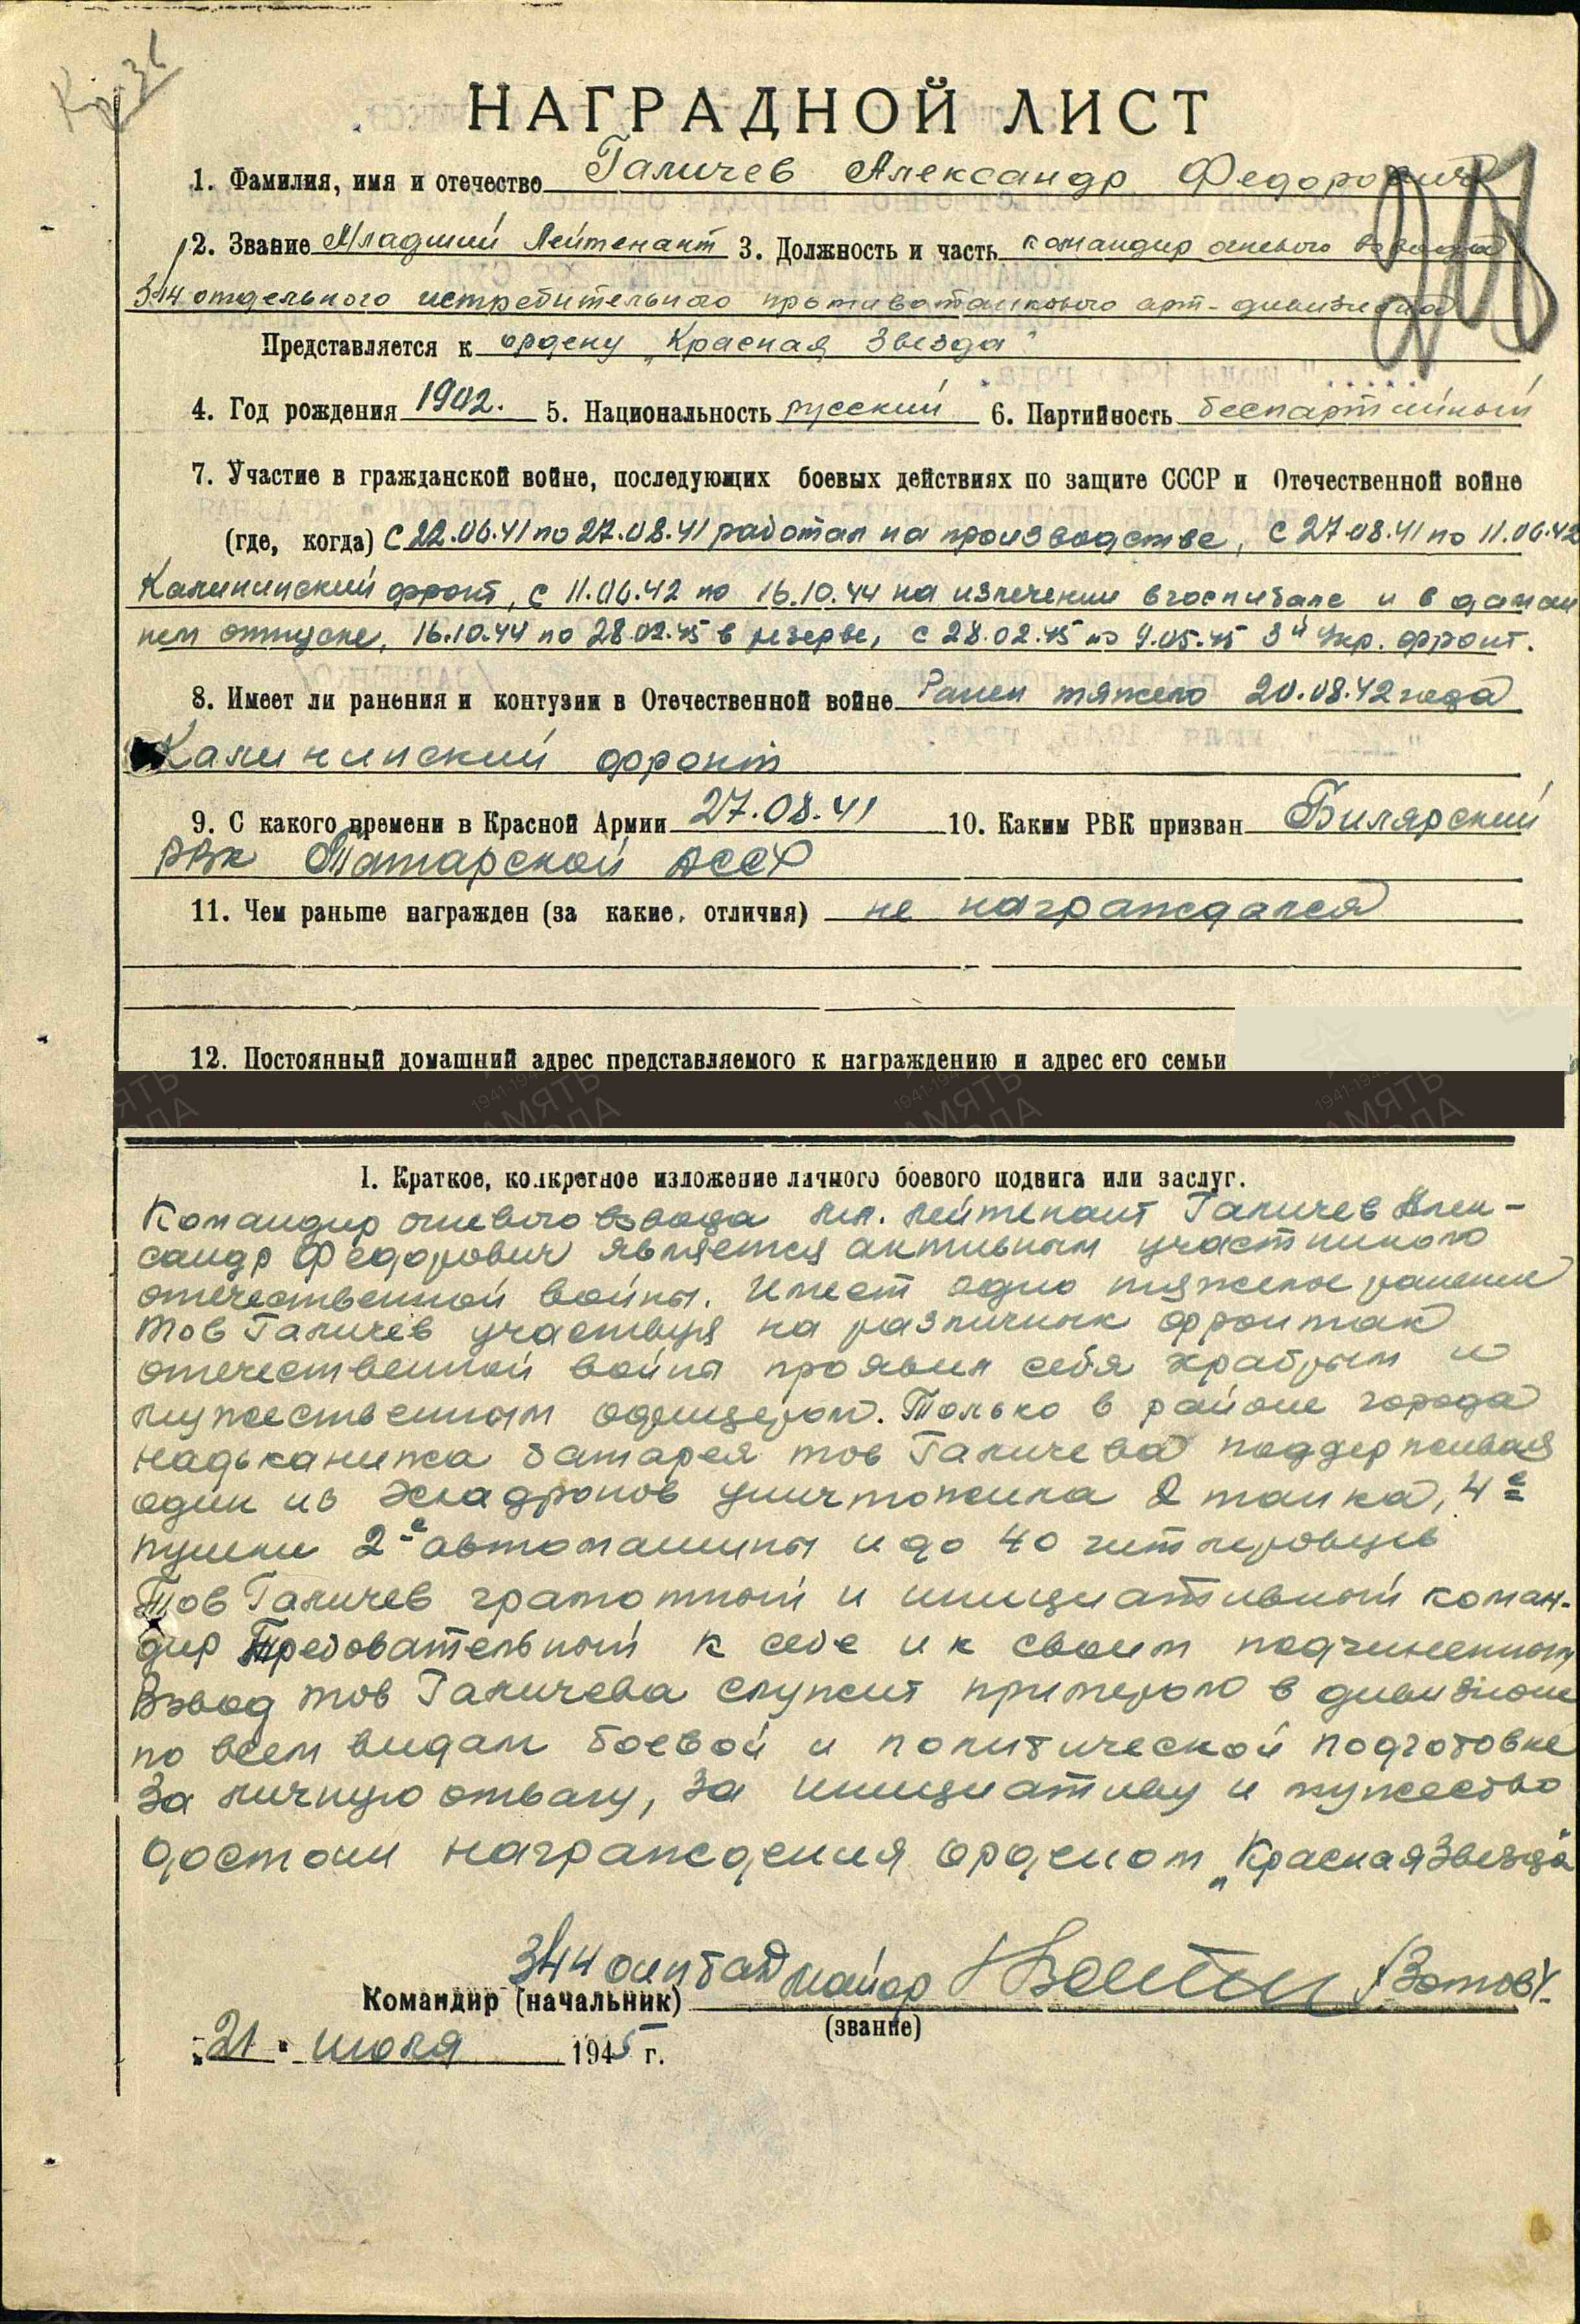 Кр. Зв
НАГРАДНОЙ ЛИСТ
1. Фамилия, имя и отечество Галичев Александр Федорович
2. Звание Младший Лейтенант 3. Должность и часть командир огневого взвода
344 отдельного истребительного противотанкового арт-дивизиона
Представляется к ордену „Красная Звезда"
4. Год рождения 1902. 5. Национальность русский 6. Партийность беспартийный
7. Участие в гражданской войне, последующих боевых действиях по защите СССР и Отечественной войне
(где, когда) С 22.06.41 по 27.08.41 работал на производстве, с 27.08.41 по 11.06.42
Калининский фронт, с 11.06.42 по 16.10.44 на излечении в госпитале и в домаш
нем отпуске, 16.10.44 по 28.02.45 в резерве, с 28.02.45 по 9.05.45 3й Укр. фронт.
8. Имеет ли ранения и контузии в Отечественной войне Ранен тяжело 20.08.42 года
Калининский фронт
9. С какого времени в Красной Армии 27.08.41 10. Каким РВК призван Билярский
РВК Татарской АССР
11. Чем раньше награжден (за какие, отличия) не награждался
12. Постоянный домашний адрес представляемого к награждению и адрес его семьи
I. Краткое, конкретное изложение личного боевого подвига или заслуг.
Командир огневого взвода мл. лейтенант Галичев Алек-
сандр Федорович является активным участником
отечественной войны. Имеет одно тяжелое ранение
Тов Галичев участвуя на различных фронтах
отечественной войны проявил себя храбрым и
мужественным офицером. Только в районе города
Надьканижа батарея тов Галичева поддерживая
один из эскадронов уничтожила 2 танка, 4е
пушки 2е автомашины и до 40 гитлеровцев
Тов Галичев грамотный и инициативный коман-
дир Требовательный к себе и к своим подчиненным
Взвод тов Галичева служит примером в дивизионе
по всем видам боевой и политической подготовке
За личную отвагу, за инициативу и мужество
достоин награждения орденом „Красная Звезда"
344 оиптад майор /Зотов/.
Командир (начальник)
(звание)
„21" июля 1945 г.